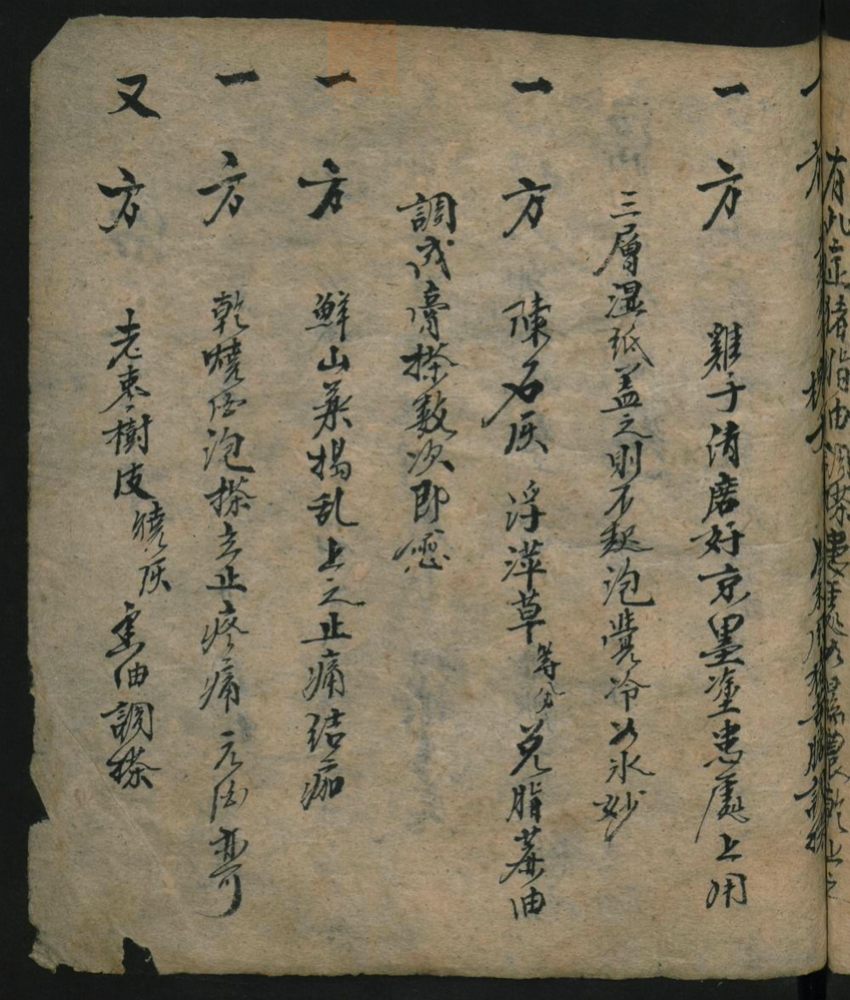 一方 雞子清磨好京墨塗患處上用
三層湿紙盖之則不起泡覺冷如氷妙
一方 陳石灰 浮萍草 等分 兑脂蔴油
調成膏搽数次即愈
一方 鮮山薬搗乱上之止痛结痂
一方 乾燒酒泡搽立止疼痛 元酒亦可
又方 老棗樹皮 燒灰 香油調搽